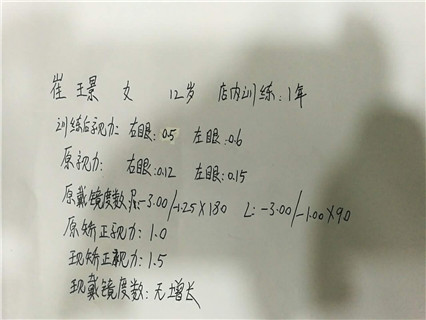 崔王景 女 12岁 店内训练:1年
训练后视力: 右眼:0.5 左眼:0.6
原视力: 右眼:0.12 左眼:0.15
原戴镜度数R:-3.00/-1.25×180 L:-3.00/-1.00×90
原矫正视力:1.0
现矫正视力:1.5
现戴镜度数:无增长